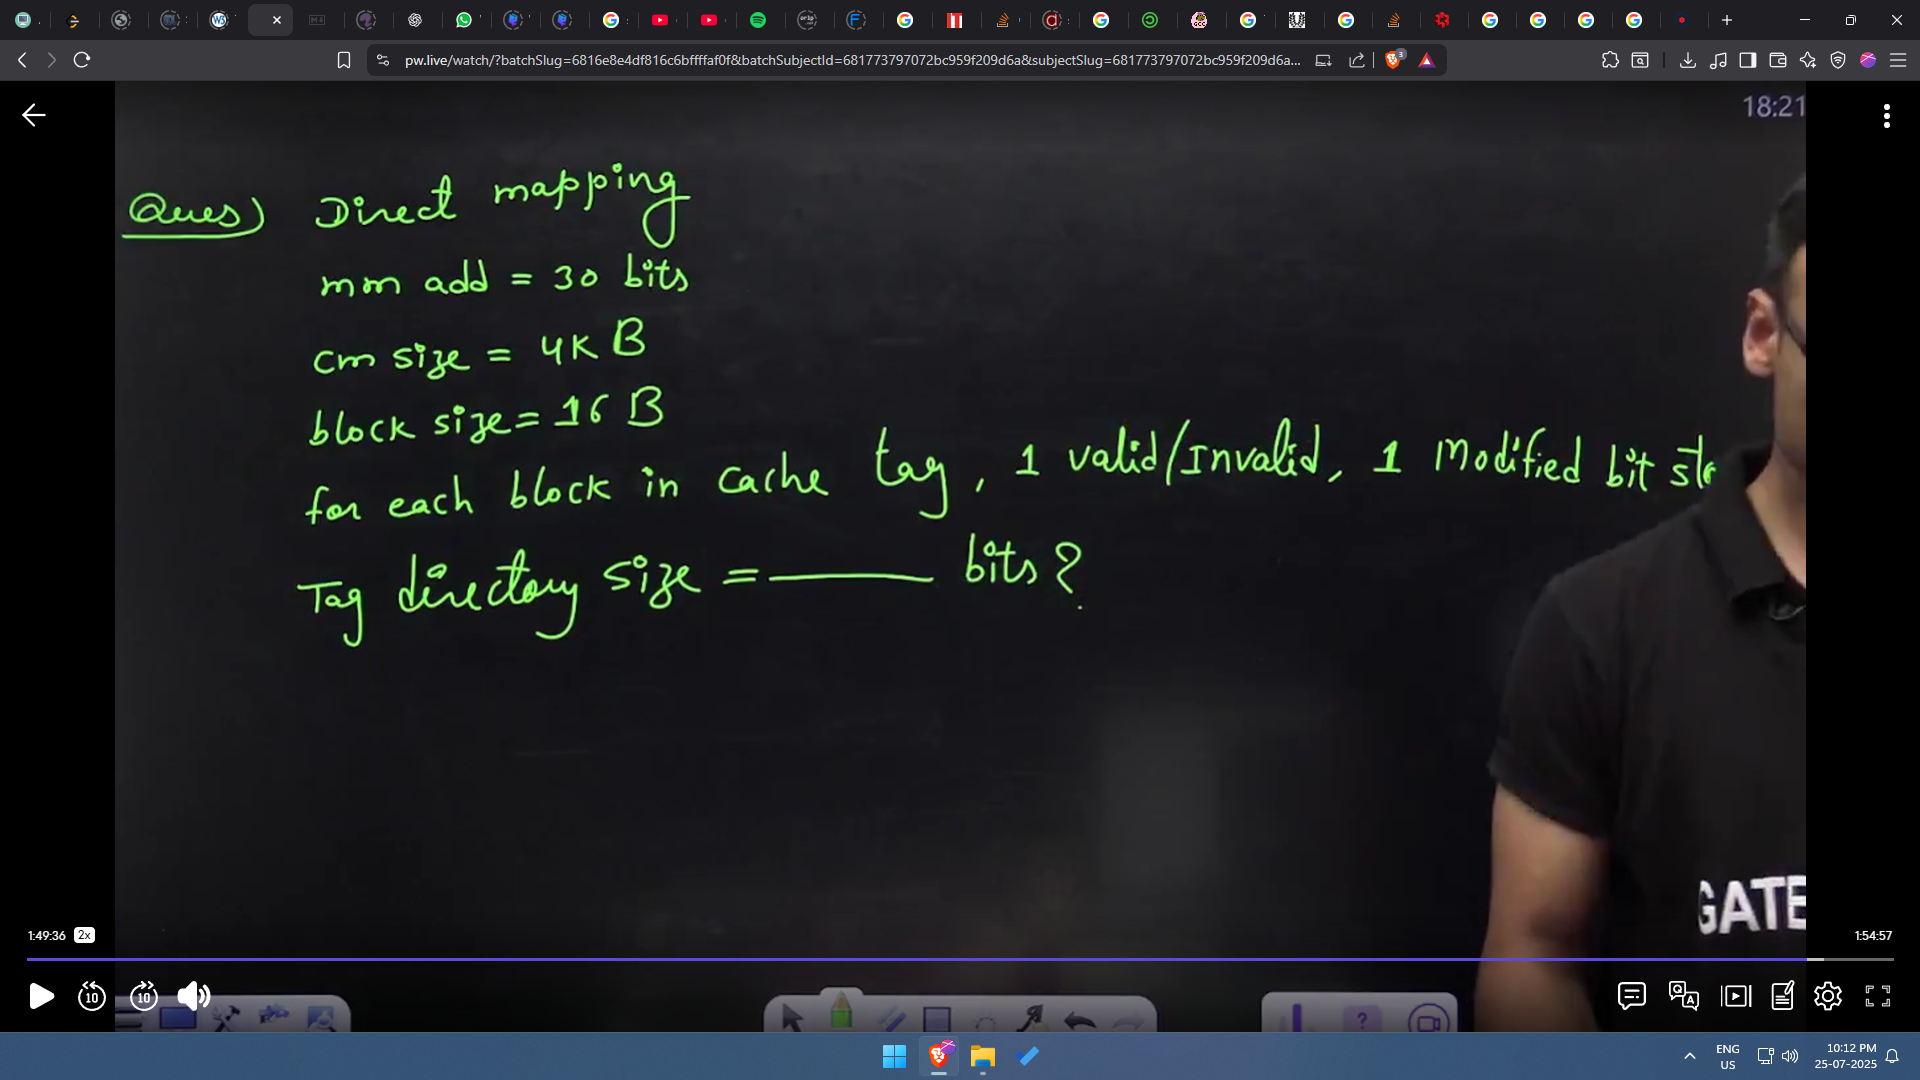 pw.live/watch/?batchSlug=6816e8e4df816c6bffffaf0f&batchSubjectId=681773797072bc959f209d6a&subjectSlug=681773797072bc959f209d6a...
18:21
Ques) Direct mapping
mm add = 30 bits
cm size = 4K B
block size = 16 B
for each block in cache tag, 1 valid/Invalid, 1 Modified bit sto
Tag directory size = ______ bits?
GATE
1:49:36 2x
1:54:57
10 10
ENG
US
10:12 PM
25-07-2025